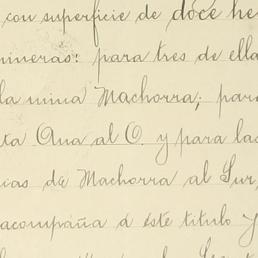 con superficie de doce he
mineras: para tres de ella
la mina Machorra; par
ta Ana al O. y para las
ias de Machorra al Sur,
acompaña á éste titulo y